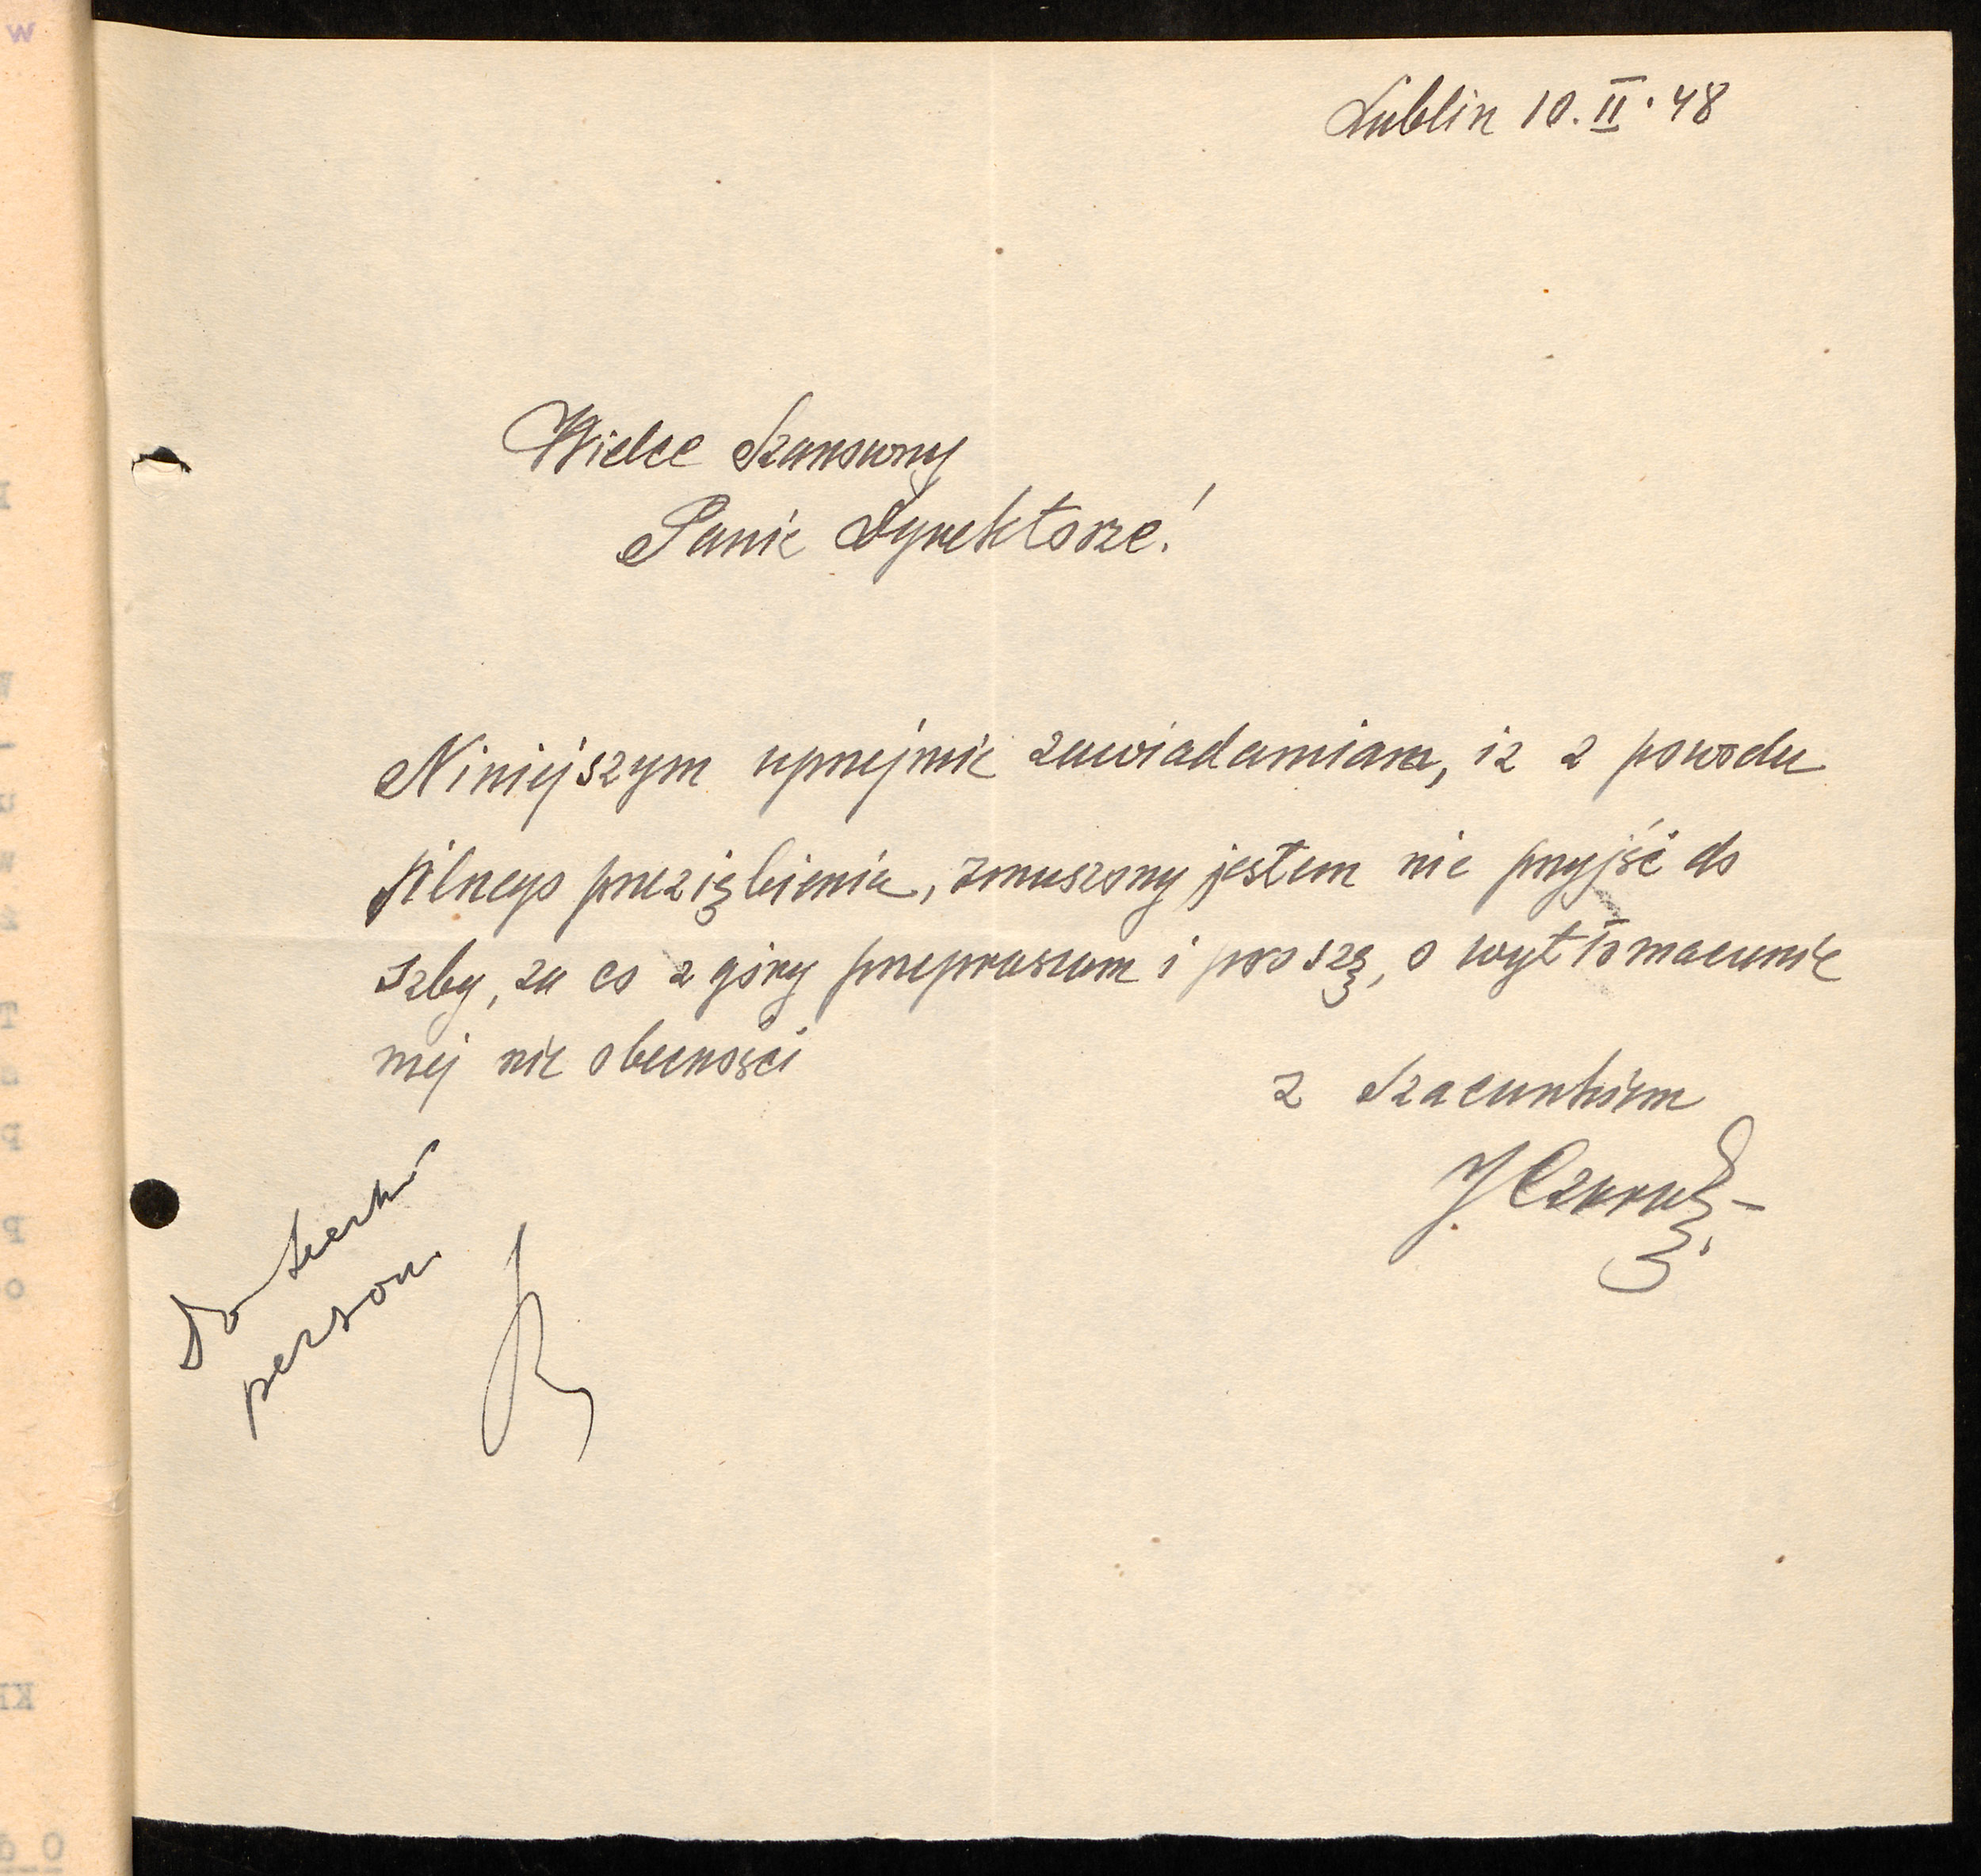 Lublin 10. II. 48
Wielce Szanowny
Panie Dyrektorze!
Niniejszym uprzejmie zawiadamiam, iż z powodu
silnego przeziębienia, zmuszony jestem nie przyjść do
Izby, za co z góry przepraszam i proszę, o wytłomaczenie
mej nie obecności
z Szacunkiem
Do teczki
person.